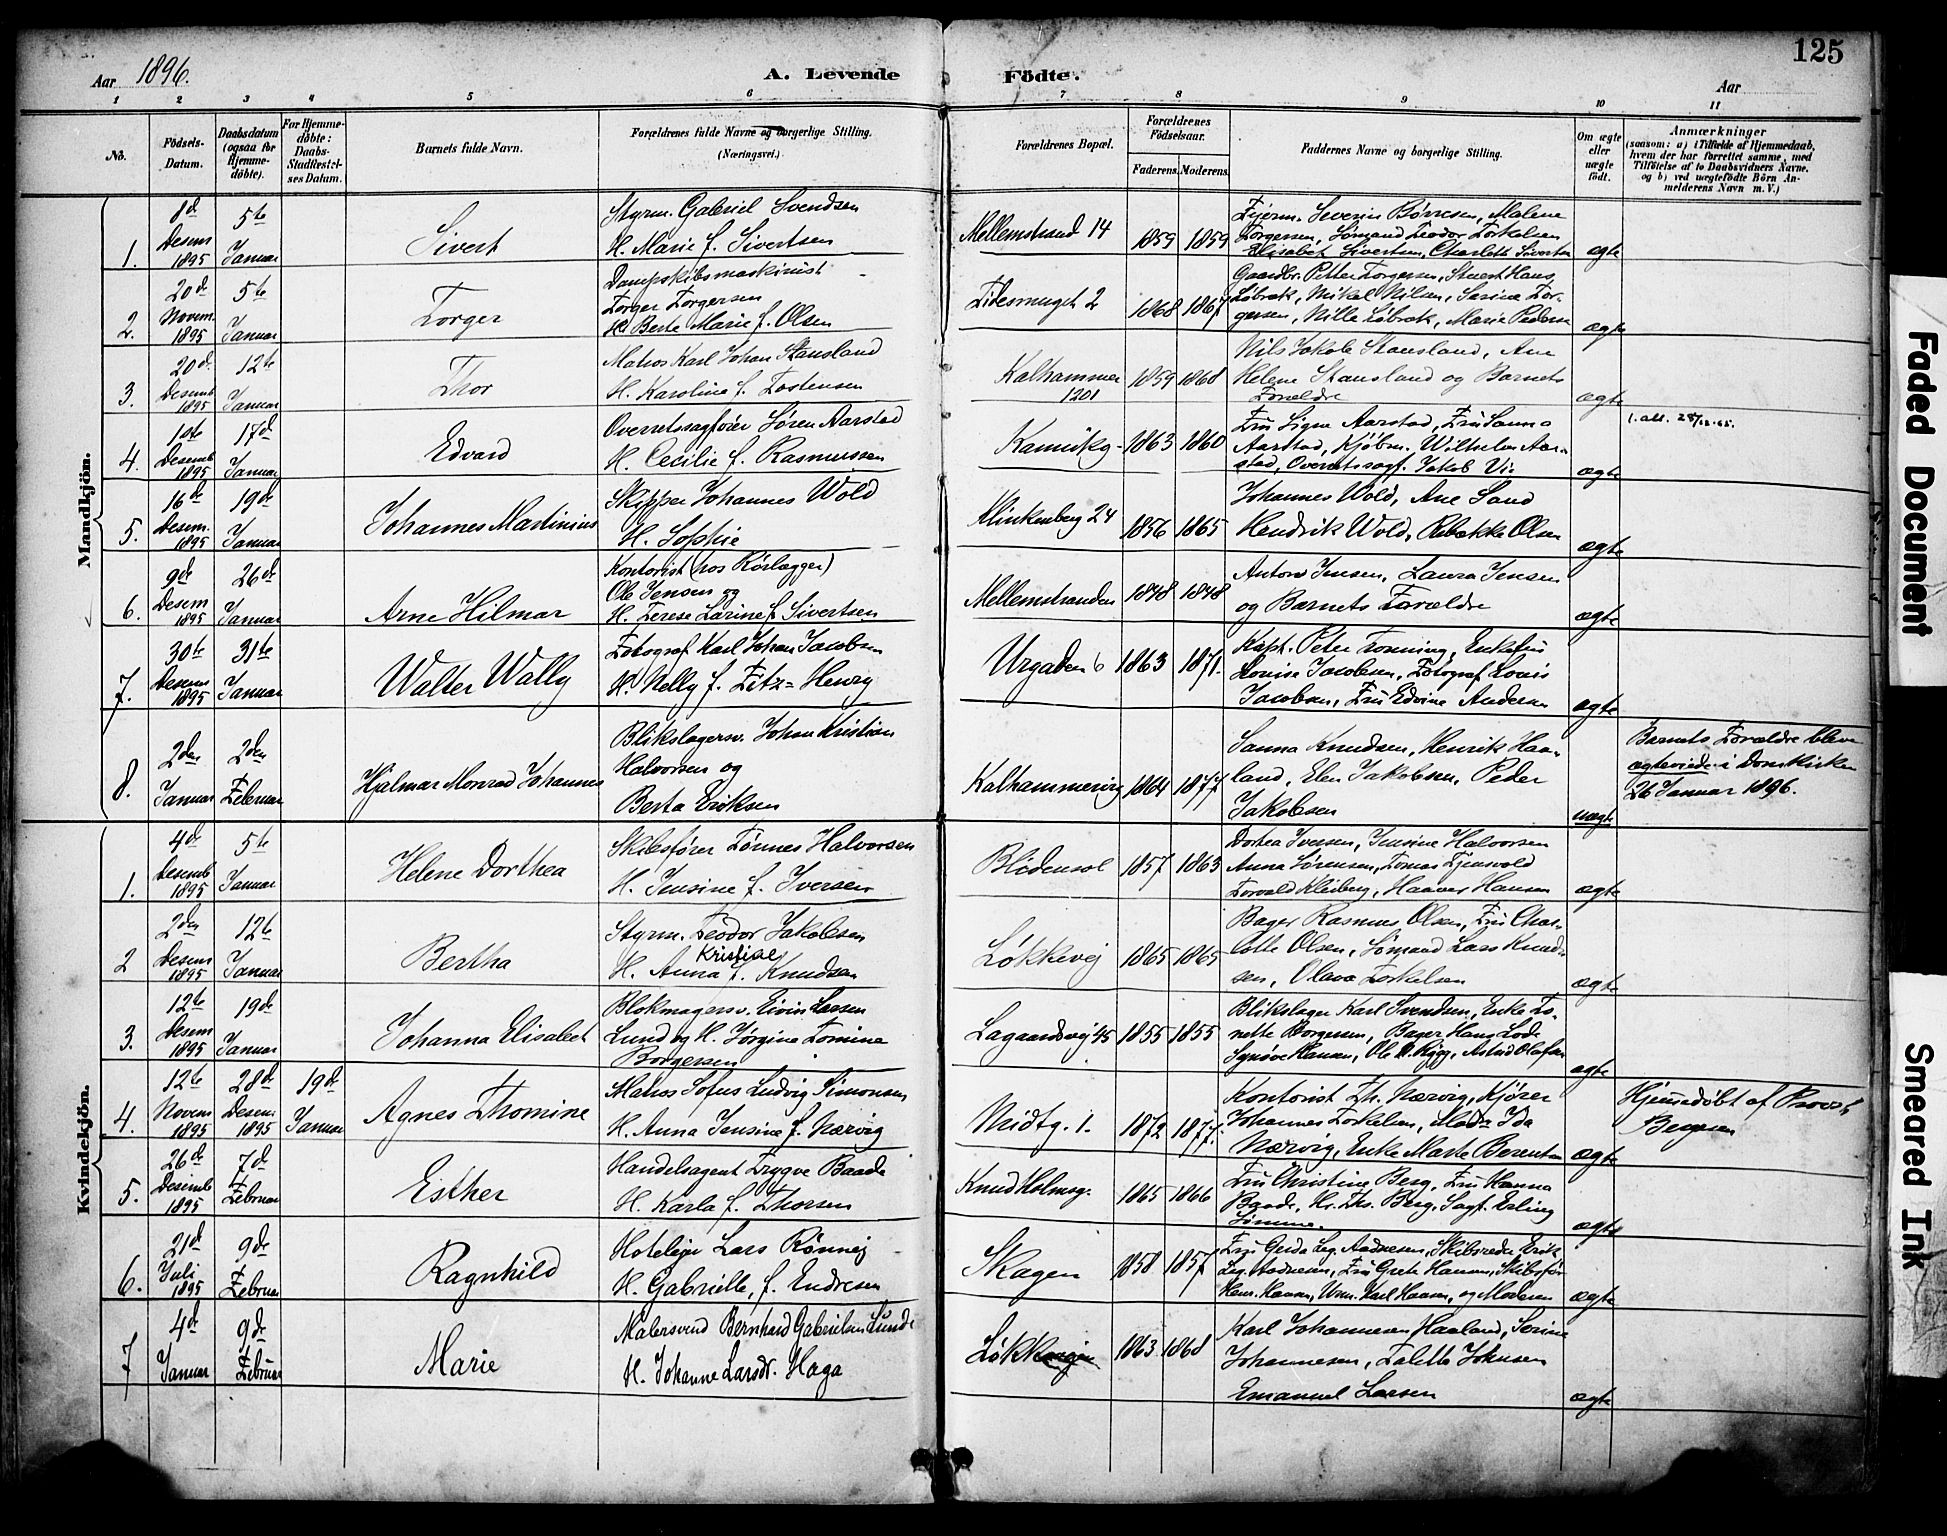 125
Aar 1896.
A. Levende Födte.
Aar
1 2 3 4 5 6 7 8 9 10 11
No.
Födsels-Datum.
Daabsdatum (ogsaa for Hjemme-döbte).
For Hjemme-döbte: Daabs-Stadfæstel-ses Datum.
Barnets fulde Navn.
Forældrenes fulde Navne og borgerlige Stilling. (Næringsvei.)
Forældrenes Bopæl.
Forældrenes Födselsaar.
Faderens. Moderens.
Faddernes Navne og borgerlige Stilling.
Om ægte eller uægte födt.
Anmærkninger
(saasom: a) i Tilfælde af Hjemmedaab,
hvem der har forrettet samme, med
Tilföielse af to Daabsvidners Navne.
og b) ved uægtefödte Börn An-
melderens Navn m. V.)
Mandkjön.
1. 8d Desem 1895
5te Januar
Sivert
Styrm. Gabriel Svendsen
H. Marie f. Sivertsen
Mellemstrand 14
1859 1859
Severin Børresen, Malene
Torgersen, Sømand Teodor Torkelsen
Elisabet Sivertsen, Charlotte Sivertsen
ægte
2. 20de Novem. 1895
5te Januar
Torger
Dampskibsmaskinist
Torger Torgersen
H. Berte Marie f. Olsen
2
1868 1867
Gaardbr. Petter Torgersen, Stuert Hans
Løbræk, Mikal Nilsen, Serine Tor-
gersen, Nille Løbræk, Marie Pederse
ægte
3. 20d. Desemb 1895
12te Januar
Thor
Matros Karl Johan Stansland
H. Karoline f. Tostensen
Kalhammer
1201
1859 1868
Nils Jakob Stansland, Ane
Helene Stansland og Barnets
Forældre
ægte
4. 1ste Desemb 1895
17d Januar
Edvard
Overretssagfører Søren Aarstad
H. Cecilie f. Rasmussen
Kannikg-
1863 1860
Fru Signe Aarstad, Fru Sanna
Aarstad, Kjøbm. Wilhelm Aar-
stad, Overretssagf. Jakob Vi-
ægte
5. 16de Desem. 1895
19de Januar
Johannes Martinius
Skipper Johannes Wold
H. Sophie
Klinkenberg 24
1856 1865
Johannes Wold, Ane Sand
Hendrik Wold, Rebekke Olsen
ægte
6. 9de Desem 1895
26de Januar
Arne Hilmar
Kontorist (hos Rørlægger)
Ole Jensen og
H. Terese Larine f. Sivertsen
Mellemstranden
1848 1848
Anton Jensen, Laura Jensen
og Barnets Forældre
ægte
7. 30te Desem 1895
31te Januar
Walter Wally
Fotograf Karl Johan Jacobsen
H. Nelly f. Fitz-Henry
Urgaden 6
1863 1871.
Kapt. Peter Tonning, Enkefru
Louise Jacobsen, Fotograf Louis
Jacobsen, Fru Edvine Andersen
ægte
8. 2den Januar
2den Februar
Hjalmar Monrad Johannes
Blikslagersv. Johan Kristian
Halvorsen og
Berta Eriksen
Kalhammervig
1864 1877
Sanna Knudsen, Henrik Haa-
land, Elen Jakobsen, Peder
Jakobsen
uægte
Barnets Forældre bleve
ægteviede i Domkirken
26 Januar 1896.
Kvindekjön.
1. 4d Desemb 1895
5te Januar
Helene Dorthea
Skibsfører Tønnes Halvorsen
H. Jensine f. Iversen
Blidensol
1857 1863
Dortea Iversen, Jensine Halvorsen
Anna Sørensen, Tomas Tjensvold
Torvald Kleiberg, Haaver Hansen
ægte
2 2den Desem 1895
12te Januar
Bertha
Styrm. Teodor Jakobsen
Kristine
H. Anna f. Knudsen
Løkkevej
1865 1865
Bager Rasmus Olsen, Fru Char-
lotte Olsen, Sømand Lars Knud-
sen, Olava Torkelsen
ægte
3. 12te Desem 1895
19de Januar
Johanna Elisabeth
Blokmagersv. Eivin Larsen
Lund og H. Jørgine Tomine
Borgersen
Lagaardsvej 45
1855 1855
Blikslager Karl Svendsen, Enke To-
nette Borgersen, Bager Hans Lode
Synsve Hansen, Ole A. Rygg, Astrid Olafsen
ægte
4. 12te Novem 1895
28de Desem. 1895
19de Januar
Agnes Thomine
Matros Sofus Ludvig Simonsen
H. Anna Jensine f. Nærvig
Midtg. 1.
1872 1877.
Kontorist Th. Nærvig, Kjører
Johannes Torkelsen, Ida
Nærvig, Enke Marte Berentsen
ægte
Hjemedøbt af Provst
5. 26de Desemb 1895
7d Februar
Esther
Handelsagent Trygve Baade
H. Karla f. Thorsen
Knud Holmsg.
1865 1866
Fru Christine Berg, Fru Hanna
Baade, Hr. Ths. Berg, Sagf. Erling
Sømme.
ægte
6. 21d Juli 1895
9de Februar
Ragnhild
Lars Rønnej
H. Gabrielle, f. Endresen
Skagen
1858 1857
Fru Gerda Leg. Andresen, Skibsreder Erik
Leg. Andresen, Fru Grete Hansen, Skibsfør
Karl Hansen, og Moderen
ægte
7 4d Januar
9de Februar
Marie
Malersvend Bernhard Gabrielsen Sunde
H. Johanne Larsdr. Haga
1863 1868
Karl Johannesen Haaland, Serine
Johannesen, Talette Johnsen
Emanuel Larsen
ægte
Faded Document
Smeared Ink